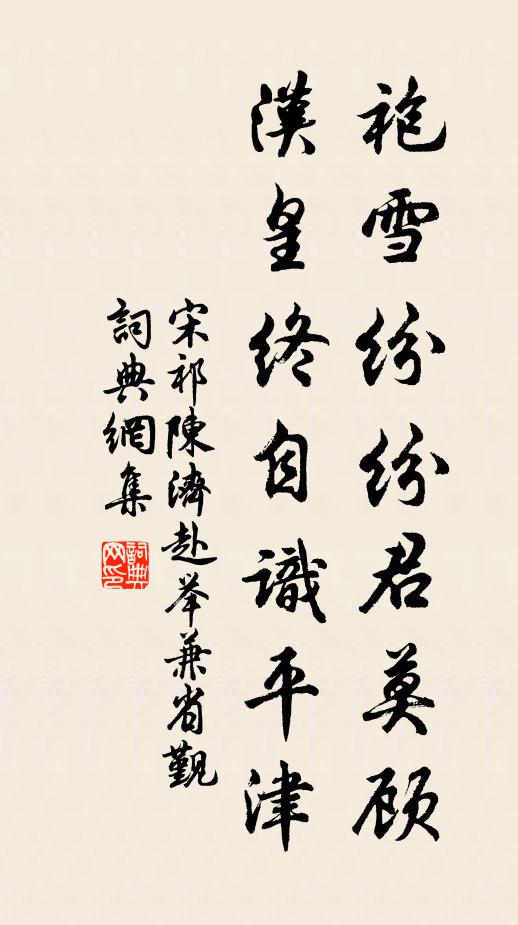 袍雪紛紛君莫顾
漢皇終自識平津
宋祁陳濟赴举兼省觀
詞典網集
詞典网印